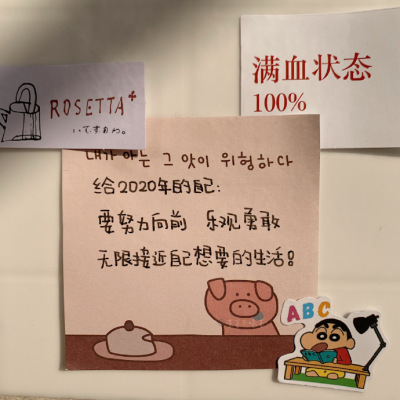 ROSETTA
满血状态
100%
내가 아는 그 맛이 위험하다
给2020年的自己:
要努力向前 乐观勇敢
无限接近自己想要的生活!
ABC